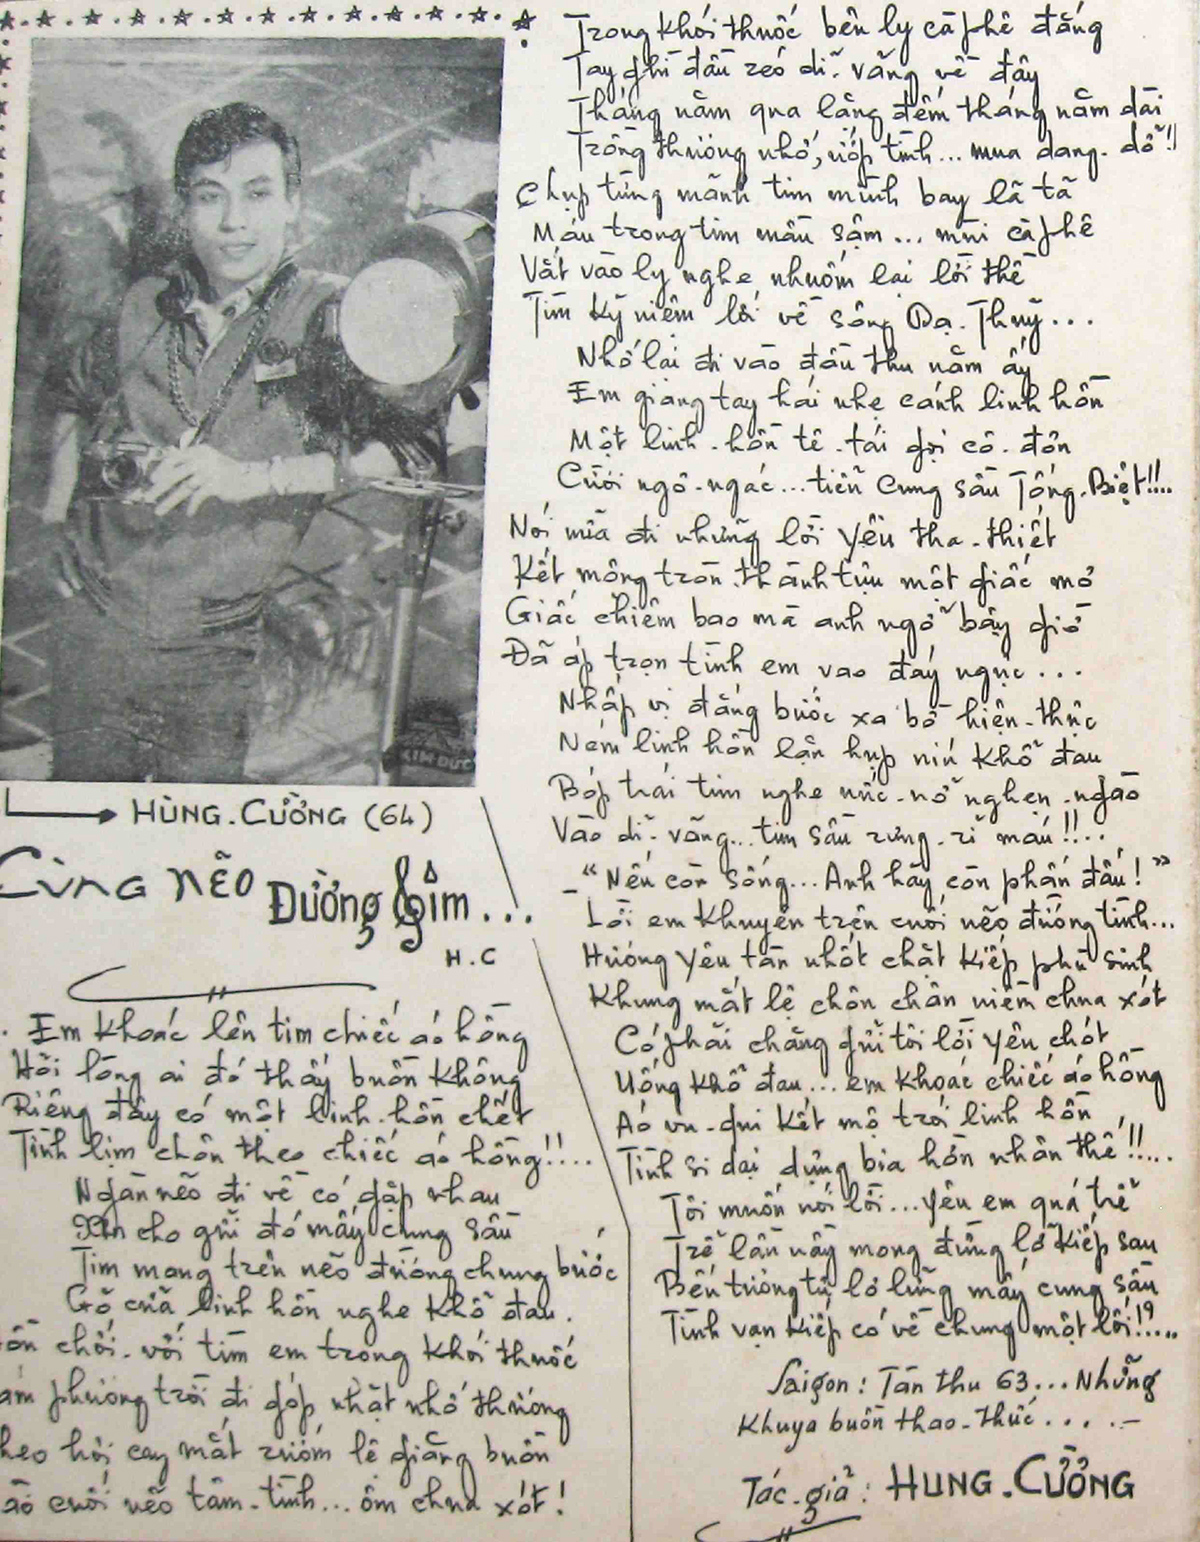 KIM ĐỨC
HÙNG.CƯỜNG (64)
CÙNG NẼO ĐƯỜNG tim...
H.C
. Em khoác lên tim chiếc áo hồng
Hỏi lòng ai đó thấy buồn không
Riêng đây có một linh-hồn chết
Tình lịm chôn theo chiếc áo hồng!!...
Ngàn nẽo đi về có gặp nhau
Xin cho gửi đó mấy cung sầu
Tim mang trên nẽo đường chung bước
Gõ cửa linh hồn nghe khổ đau.
ồn chơi-vơi tìm em trong khói thuốc
ám phương trời đi góp nhặt nhớ thương
heo hơi cay mắt rướm lệ giăng buồn
ào cuối nẽo tâm-tình... ôm chua xót!
Trong khói thuốc bên ly cà phê đắng
Tay ghì đầu réo dĩ-vãng về đây
Tháng năm qua lẳng đếm tháng năm dài
Trồng thương nhớ, ướp tình... mua dang-dở!!
Chụp từng mảnh tim mình bay lã tã
Máu trong tim mầu sậm... mùi cà phê
Vắt vào ly nghe nhuốm lại lời thề
Tìm kỷ niệm lối về sông Dạ-Thuỷ...
Nhớ lại đi vào đầu thu năm ấy
Em giang tay hái nhẹ cánh linh hồn
Một linh-hồn tê-tái gợi cô-đơn
Cười ngô-ngác... tiễn cung sầu Tống-Biệt!!!..
Nói nữa đi những lời yêu tha-thiết
Kết mộng tròn thành tựu một giấc mơ
Giấc chiêm bao mà anh ngở bây giờ
Đã ấp trọn tình em vào đáy ngực...
Nhấp vị đắng bước xa bờ hiện-thực
Ném linh hồn lặn hụp níu khổ đau
Bóp trái tim nghe nức-nở nghẹn-ngào
Vào dĩ-vãng... tim sầu rưng-rỉ máu!!...
-“Nếu còn sống... Anh hãy còn phấn đấu!”
Lời em khuyên trên cuối nẽo đường tình...
Hương yêu tàn nhốt chặt kiếp phù sinh
Khung mắt lệ chôn chân niềm chua xót
Có phải chăng gửi tôi lời yêu chót
Uống khổ đau... em khoác chiếc áo hồng
Áo vu-qui kết mộ trói linh hồn
Tình si dại dựng bia hờn nhân thế!!...
Tôi muốn nói lời... yêu em quá trễ
Trễ lần này mong đừng lỡ kiếp sau
Bến tương tư lơ lửng mấy cung sầu
Tình vạn kiếp có về chung một lối!?...
Saigon: Tàn thu 63... Những
Khuya buồn thao-thức....-
Tác-giả: HÙNG.CƯỜNG